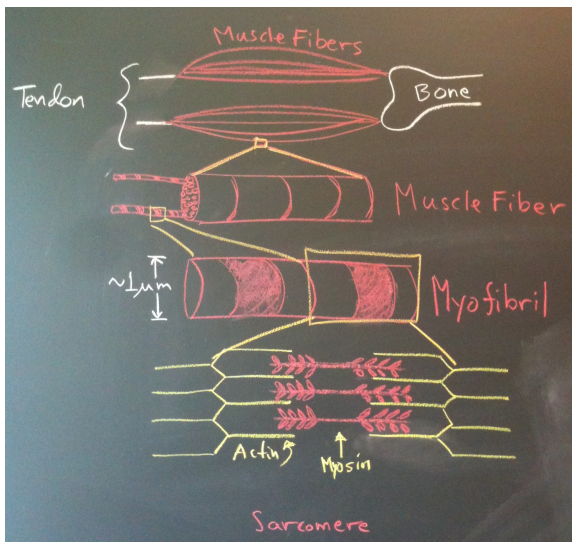 Muscle Fibers
Tendon
Bone
Muscle Fiber
~1μm
Myofibril
Actin
Myosin
Sarcomere